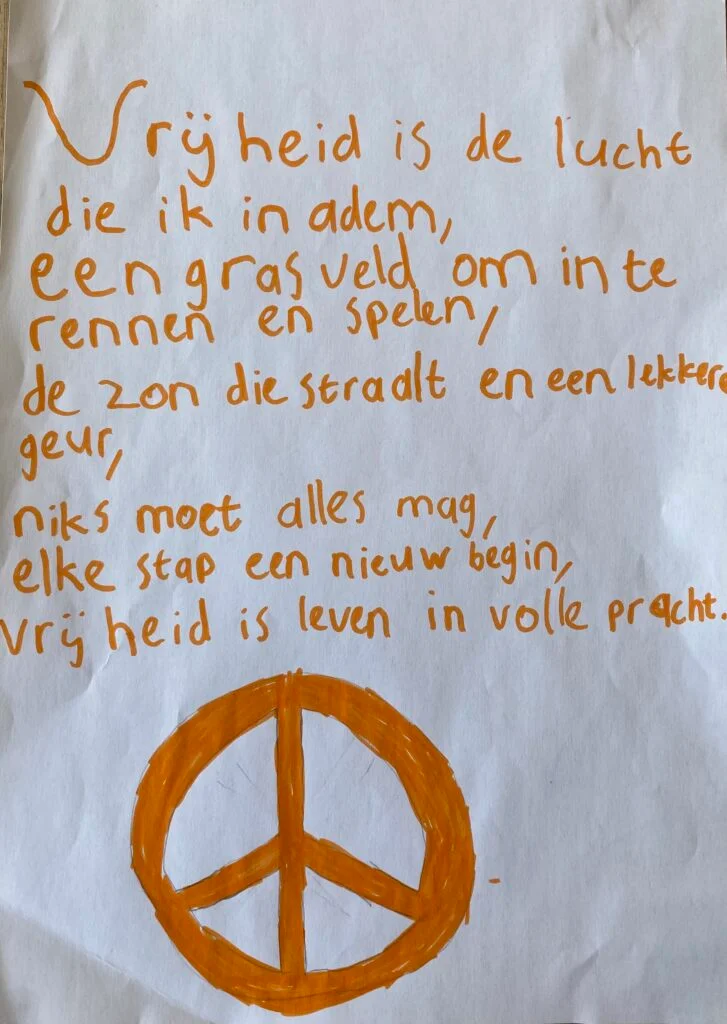 Vrijheid is de lucht
die ik in adem,
een grasveld om in te
rennen en spelen,
de zon die straalt en een lekkere
geur,
niks moet alles mag,
elke stap een nieuw begin,
vrijheid is leven in volle pracht.